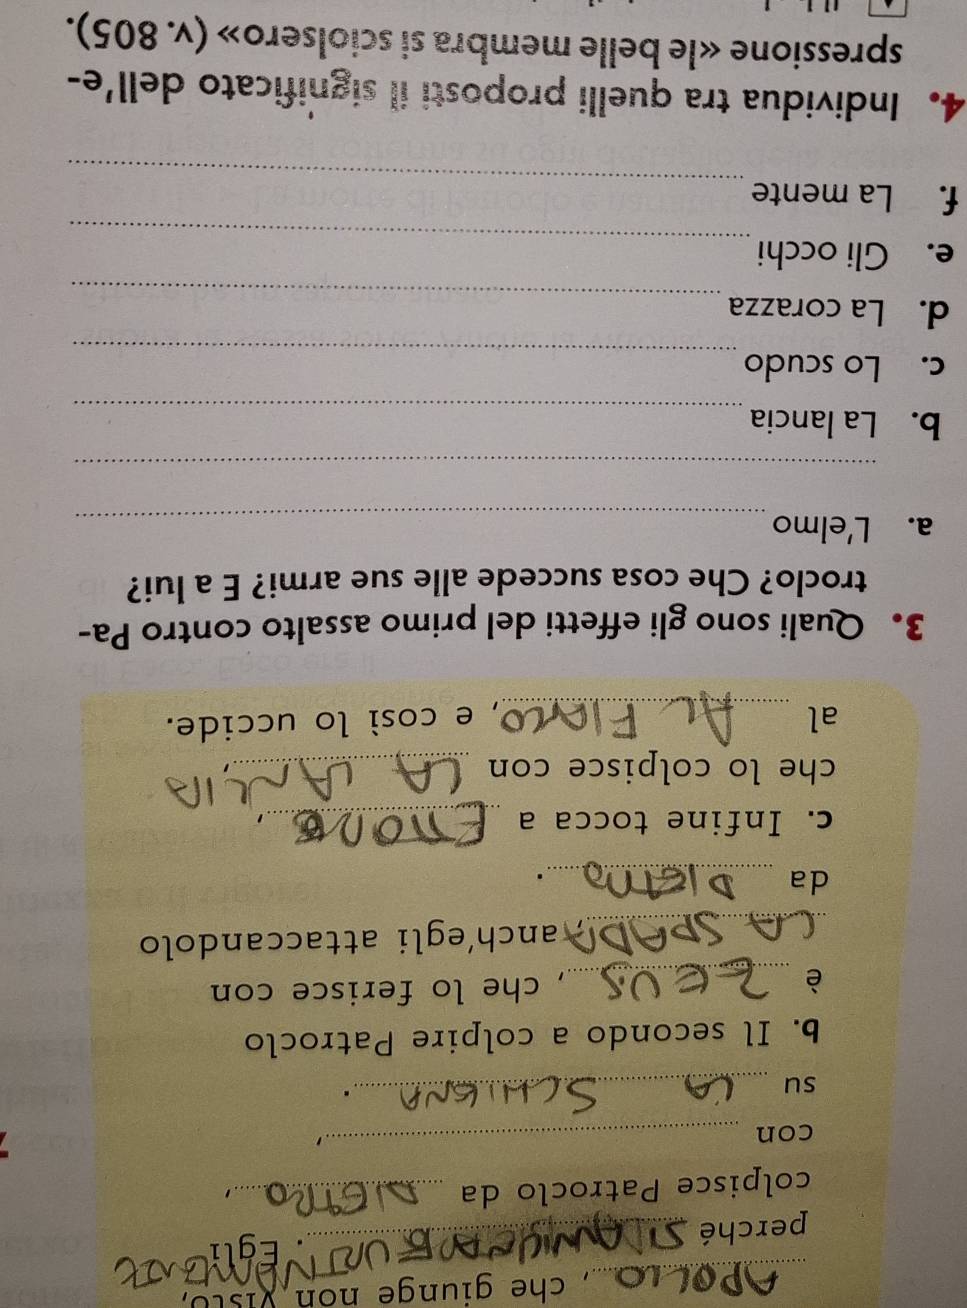 APOLLO, che giunge non visto,
perché SI LANCIA FURTIVAMENTE. Egli
colpisce Patroclo da DIETRO,
con ,
su LA SCHIENA.
b. Il secondo a colpire Patroclo
è ZEUS, che lo ferisce con
LA SPADA, anch'egli attaccandolo
da DIETRO.
c. Infine tocca a ETTORE,
che lo colpisce con LA LANCIA,
al AL FIANCO, e così lo uccide.
3. Quali sono gli effetti del primo assalto contro Pa-
troclo? Che cosa succede alle sue armi? E a lui?
a. L'elmo
b. La lancia
c. Lo scudo
d. La corazza
e. Gli occhi
f. La mente
4. Individua tra quelli proposti il significato dell'e-
spressione «le belle membra si sciolsero» (v. 805).